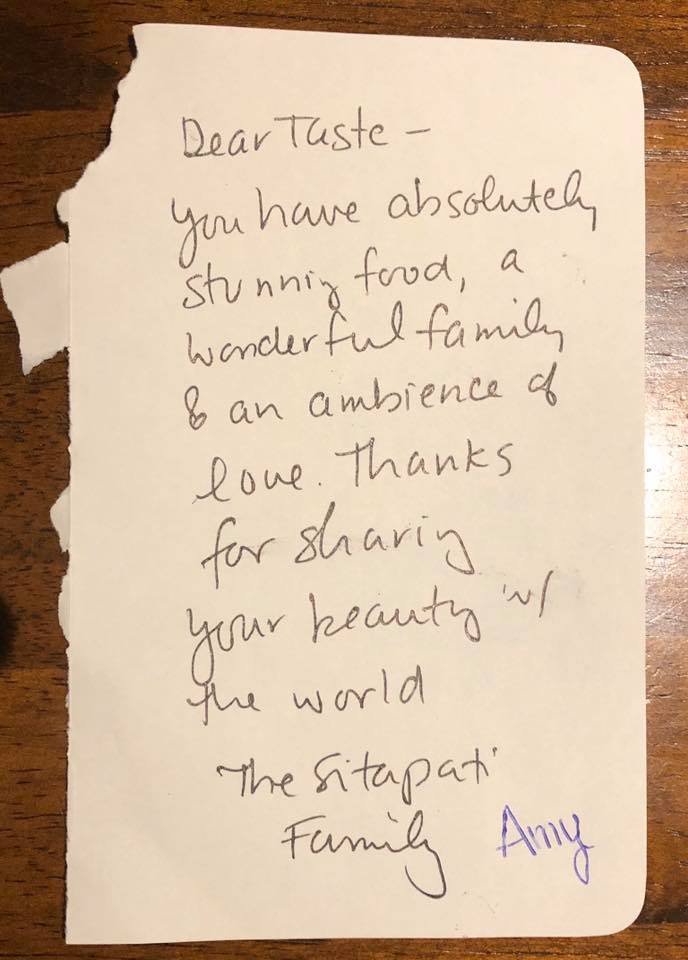 Dear Taste –
you have absolutely
stunning food, a
wonderful family
& an ambience of
love. Thanks
for sharing
your beauty w/
the world
The Sitapati
Family Amy